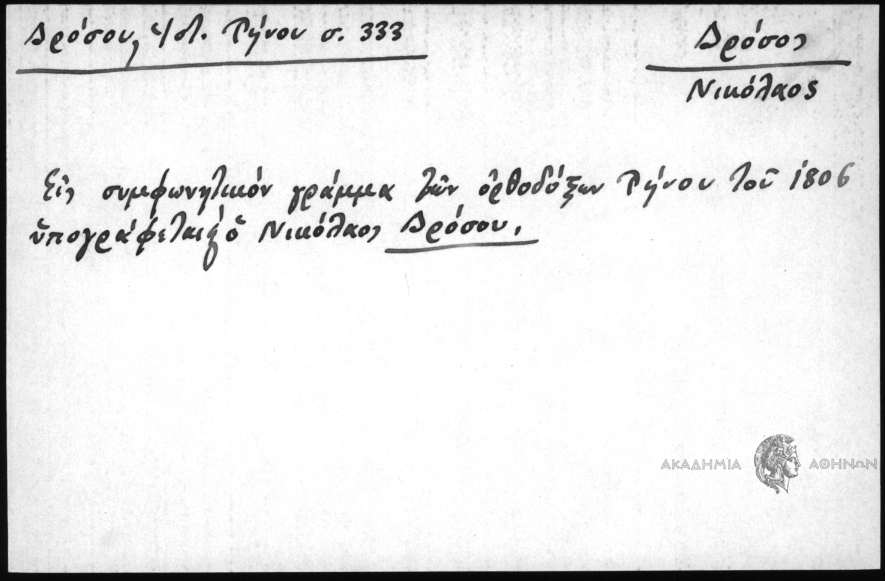 Δρόσου, Ἱστ. Τήνου σ. 333
Δρόσος
Νικόλαος
Εἰς συμφωνητικόν γράμμα τῶν ὀρθοδόξων Τήνου τοῦ 1806
ὑπογράφεται καὶ ὁ Νικόλαος Δρόσου.
ΑΚΑΔΗΜΙΑ ΑΘΗΝΩΝ